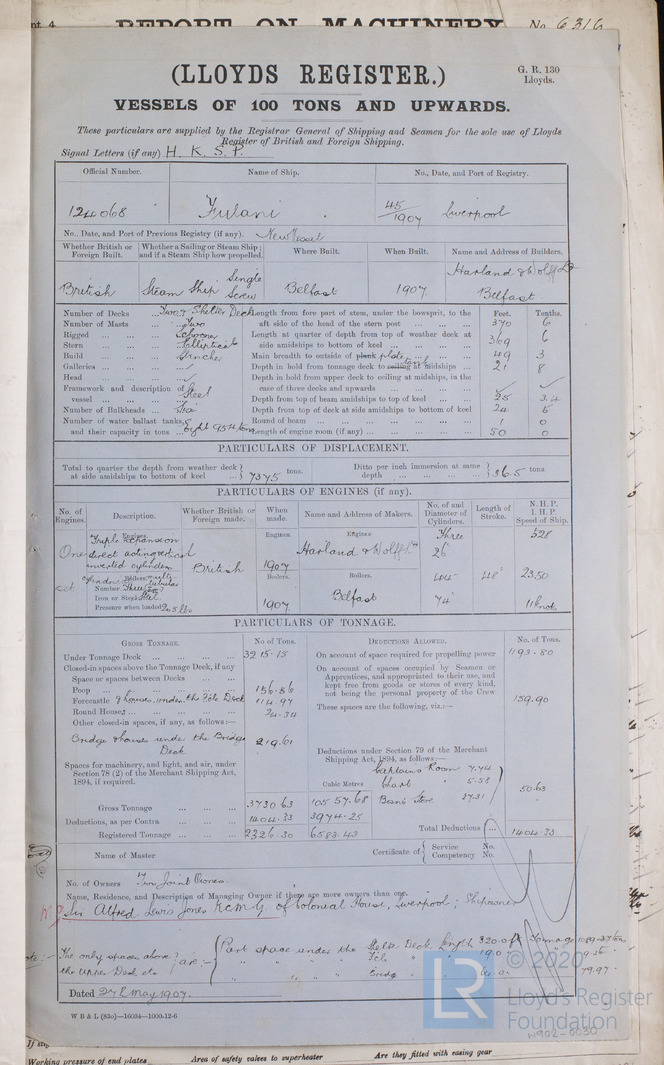 REPORT ON MACHINERY No. 6316
(LLOYDS REGISTER.)
G. R. 130
Lloyds.
VESSELS OF 100 TONS AND UPWARDS.
These particulars are supplied by the Registrar General of Shipping and Seamen for the sole use of Lloyds
Register of British and Foreign Shipping.
Signal Letters (if any) H. K. S. P.
Official Number. Name of Ship. No., Date, and Port of Registry.
124068 Fulani 45/1907 Liverpool
No., Date, and Port of Previous Registry (if any). New Vessel
Whether British or Foreign Built. Whether a Sailing or Steam Ship; and if a Steam Ship how propelled. Where Built. When Built. Name and Address of Builders.
British Steam Ship Single Screw Belfast 1907 Harland & Wolff Ld Belfast
Number of Decks ... Two & Shelter Deck
Number of Masts ... Two
Rigged ... Schooner
Stern ... Elliptical
Build ... Clincher
Galleries ...
Head ...
Framework and description of vessel ... Steel
Number of Bulkheads ...
Number of water ballast tanks, and their capacity in tons ... Eight 954 tons
Feet. Tenths.
Length from fore part of stem, under the bowsprit, to the aft side of the head of the stern post ... 370 6
Length at quarter of depth from top of weather deck at side amidships to bottom of keel ... 369 6
Main breadth to outside of plank plate ... 49 3
Depth in hold from tonnage deck to ceiling tank at midships ... 21 8
Depth in hold from upper deck to ceiling at midships, in the case of three decks and upwards ...
Depth from top of beam amidships to top of keel ... 25 3.4
Depth from top of deck at side amidships to bottom of keel 24 5
Round of beam ... 1 0
Length of engine room (if any) ... 50 0
PARTICULARS OF DISPLACEMENT.
Total to quarter the depth from weather deck at side amidships to bottom of keel ... 7375 tons.
Ditto per inch immersion at same depth ... 36.5 tons
PARTICULARS OF ENGINES (if any).
No. of Engines. Description. Whether British or Foreign made. When made. Name and Address of Makers. No. of and Diameter of Cylinders. Length of Stroke. N. H. P. I. H. P. Speed of Ship.
Engines. Engines. Engines
One Triple Expansion direct acting vertical inverted cylinders
British 1907 Harland & Wolff Ld Three 26 44 74 48" 528 2350 11 knot
Boilers. Boilers. Boilers.
Number Three
Iron or Steel Steel
Pressure when loaded 205 lbs
1907 Belfast
PARTICULARS OF TONNAGE.
GROSS TONNAGE. No of Tons.
Under Tonnage Deck ... 3215.15
Closed-in spaces above the Tonnage Deck, if any
Space or spaces between Decks ...
Poop ... 156.56
Forecastle & houses under the Fcle Deck 114.97
Round House ... 24.34
Other closed-in spaces, if any, as follows:—
Bridge & house under the Bridge Deck 219.61
Spaces for machinery, and light, and air, under Section 78 (2) of the Merchant Shipping Act, 1894, if required.
Cubic Metres
Gross Tonnage ... 3730.63 10557.68
Deductions, as per Contra ... 1404.33 3974.25
Registered Tonnage ... 2326.30 6583.43
DEDUCTIONS ALLOWED. No. of Tons.
On account of space required for propelling power 1193.80
On account of spaces occupied by Seamen or Apprentices, and appropriated to their use, and kept free from goods or stores of every kind, not being the personal property of the Crew
These spaces are the following, viz.:— 159.90
Deductions under Section 79 of the Merchant Shipping Act, 1894, as follows:—
Captains Room 7.74
Chart " 5.58
Boans Store 37.31
50.63
Total Deductions ... 1404.33
Name of Master
Certificate of Service No.
Competency No.
No. of Owners Two Joint Owners
Name, Residence, and Description of Managing Owner if there are more owners than one.
Sir Alfred Lewis Jones K.C.M.G. of Colonial House, Liverpool; Shipowner
Note:— The only spaces above the Upper Deck etc are:— Part space under the Shelter Deck Length 320.0 ft Tonnage
" " " " Fcle "
" " " " Bridge " 79.97
Dated 27th May 1907.
W B & L (83o)—16034—1000-12-6
© 2020
LR
Lloyd's Register
Foundation
W902-0030
Working pressure of end plates
Area of safety valves to superheater
Are they fitted with easing gear